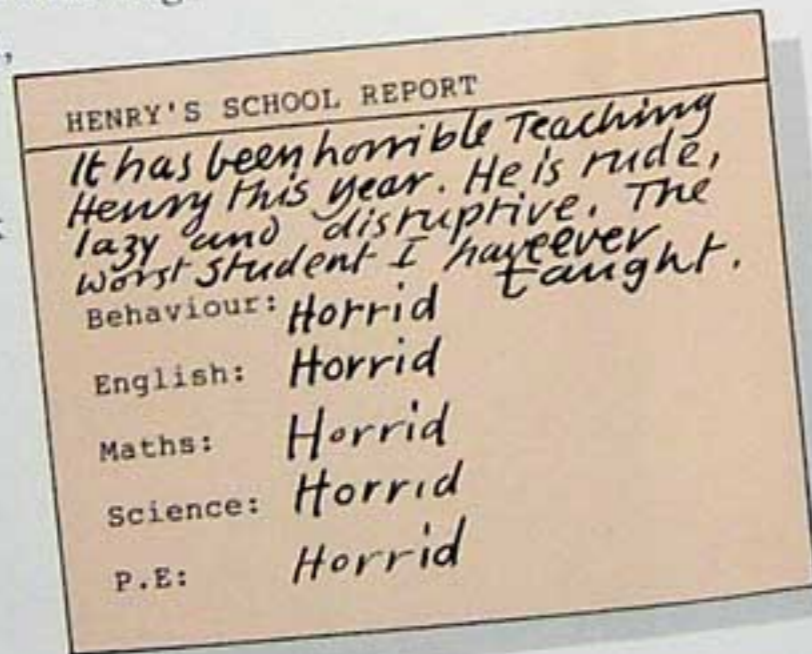 HENRY'S SCHOOL REPORT
It has been horrible Teaching
Henry this year. He is rude,
lazy and disruptive. The
worst student I have ever
taught.
Behaviour: Horrid
English: Horrid
Maths: Horrid
Science: Horrid
P.E: Horrid